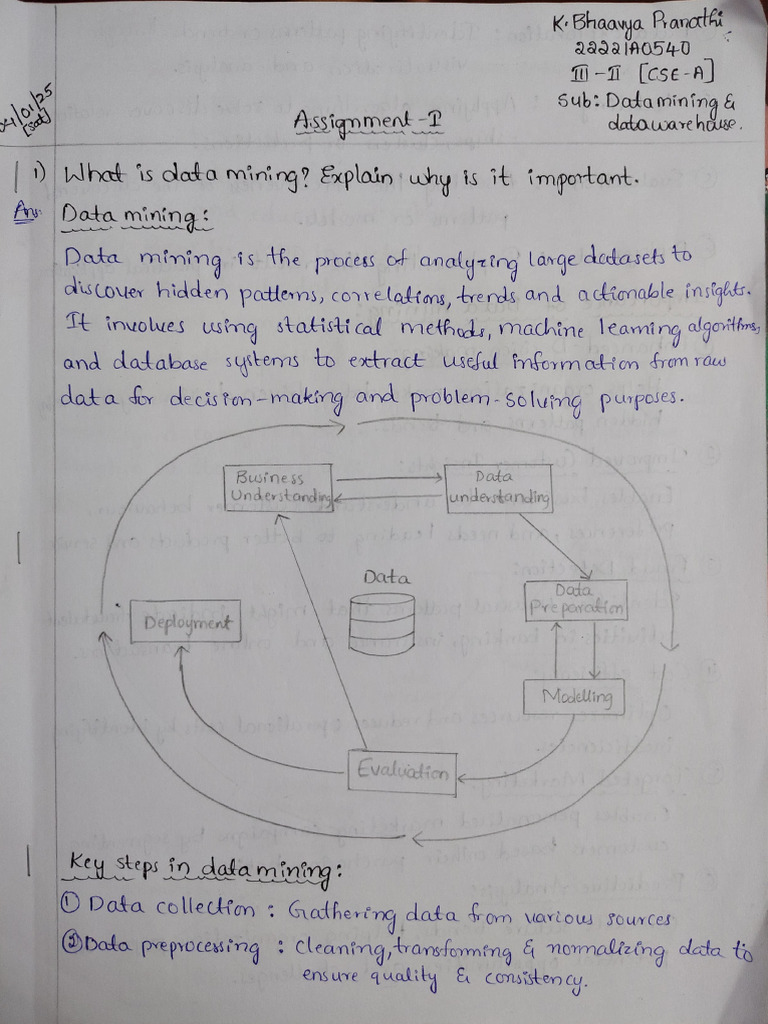 K. Bhaavya Pranathi
22221A0540
III-II [CSE-A]
Sub: Datamining &
datawarehouse.
04/01/25
[Sat]
Assignment-I
1) What is data mining? Explain why is it important.
Ans: Data mining:
Data mining is the process of analyzing large datasets to
discover hidden patterns, correlations, trends and actionable insights.
It involves using statistical methods, machine learning algorithms,
and database systems to extract useful information from raw
data for decision-making and problem-solving purposes.
Business
Understanding
Data
understanding
Data
Data
Preparation
Deployment
Modelling
Evaluation
Key steps in datamining:
① Data collection : Gathering data from various sources
② Data preprocessing : cleaning, transforming & normalizing data to
ensure quality & consistency.